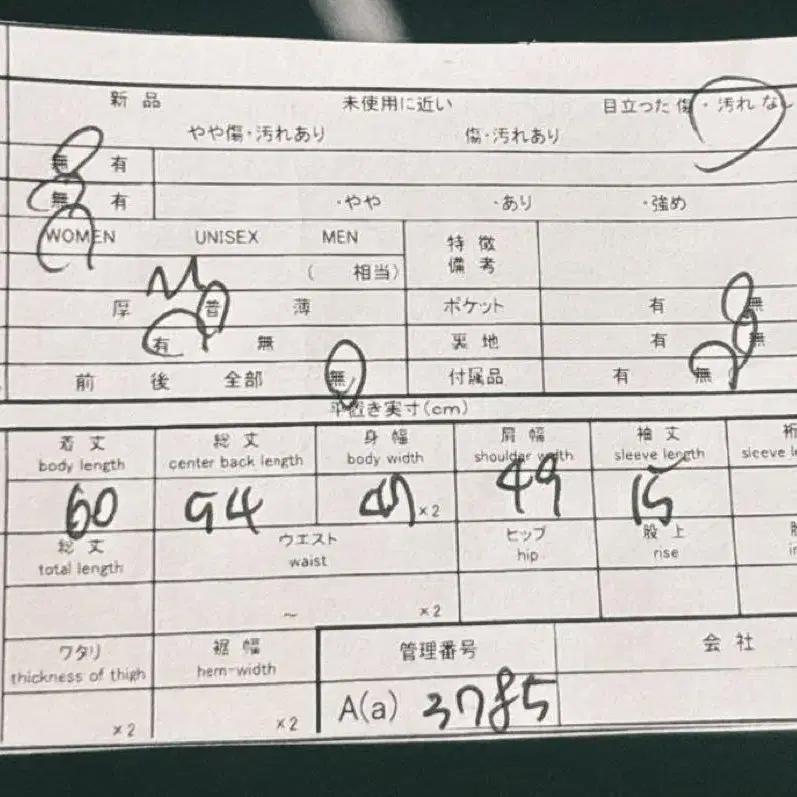 新品 未使用に近い 目立った傷・汚れなし
やや傷・汚れあり 傷・汚れあり
無 有
無 有 ・やや ・あり ・強め
WOMEN UNISEX MEN 特徴
備考
M ( 相当)
厚 普 薄 ポケット 有 無
有 無 裏地 有 無
前 後 全部 無 付属品 有 無
平置き実寸(cm)
着丈 総丈 身幅 肩幅 袖丈 裄
body length center back length body width shoulder width sleeve length sleeve
60 94 47 ×2 49 15
総丈 ウエスト ヒップ 股上
total length waist hip rise
~ ×2
ワタリ 裾幅 管理番号 会社
thickness of thigh hem-width
×2 ×2 A(a) 3785